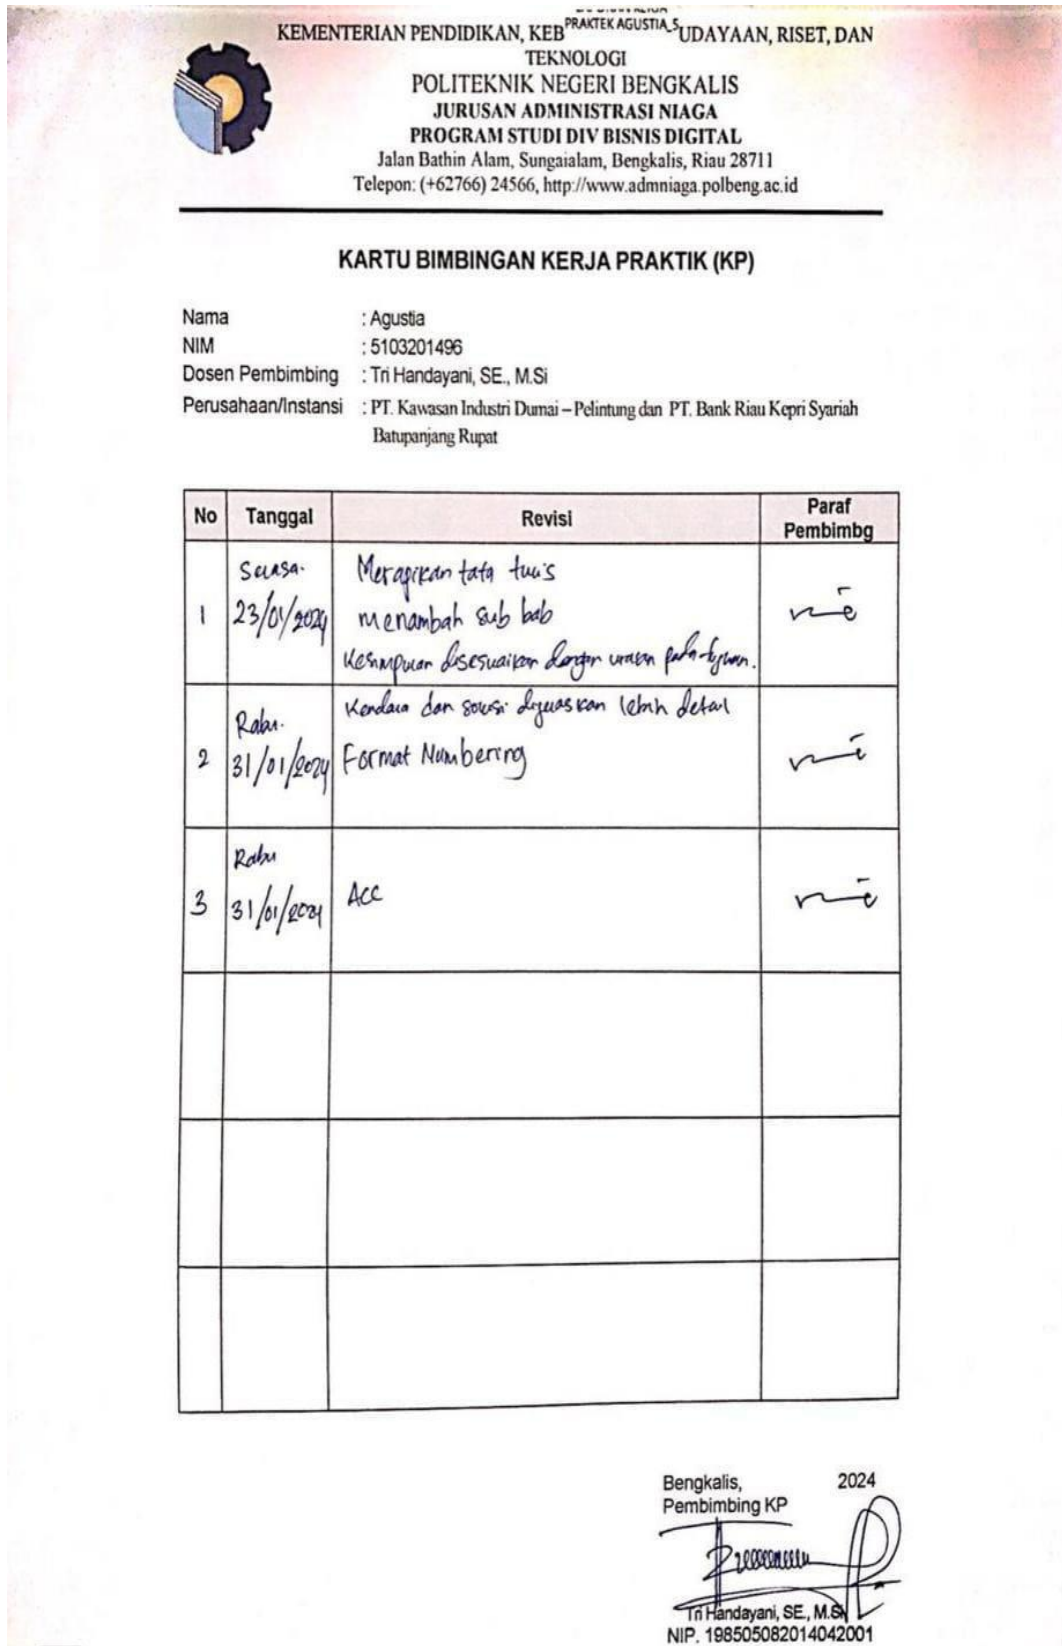 PRAKTEK AGUSTIA_S
KEMENTERIAN PENDIDIKAN, KEBUDAYAAN, RISET, DAN
TEKNOLOGI
POLITEKNIK NEGERI BENGKALIS
JURUSAN ADMINISTRASI NIAGA
PROGRAM STUDI DIV BISNIS DIGITAL
Jalan Bathin Alam, Sungaialam, Bengkalis, Riau 28711
Telepon: (+62766) 24566, http://www.admniaga.polbeng.ac.id
KARTU BIMBINGAN KERJA PRAKTIK (KP)
Nama : Agustia
NIM : 5103201496
Dosen Pembimbing : Tri Handayani, SE., M.Si
Perusahaan/Instansi : PT. Kawasan Industri Dumai – Pelintung dan PT. Bank Riau Kepri Syariah
Batupanjang Rupat
No Tanggal Revisi Paraf
Pembimbg
Selasa. Merapikan tata tulis
1 23/01/2024 menambah sub bab
Kesimpulan disesuaikan dengan uraian pada tujuan.
Kendala dan solusi dijelaskan lebih detail
Rabu.
2 31/01/2024 Format Numbering
Rabu
3 31/01/2024 Acc
Bengkalis, 2024
Pembimbing KP
Tri Handayani, SE., M.Si
NIP. 198505082014042001